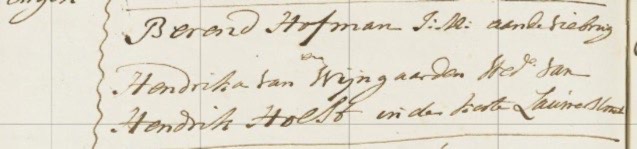 engen
Berend Hofman J: M: aande Siebrug
en
Hendrika van Wijngaarden Wed.e van
Hendrik Holst in de korte Lauwerstraat